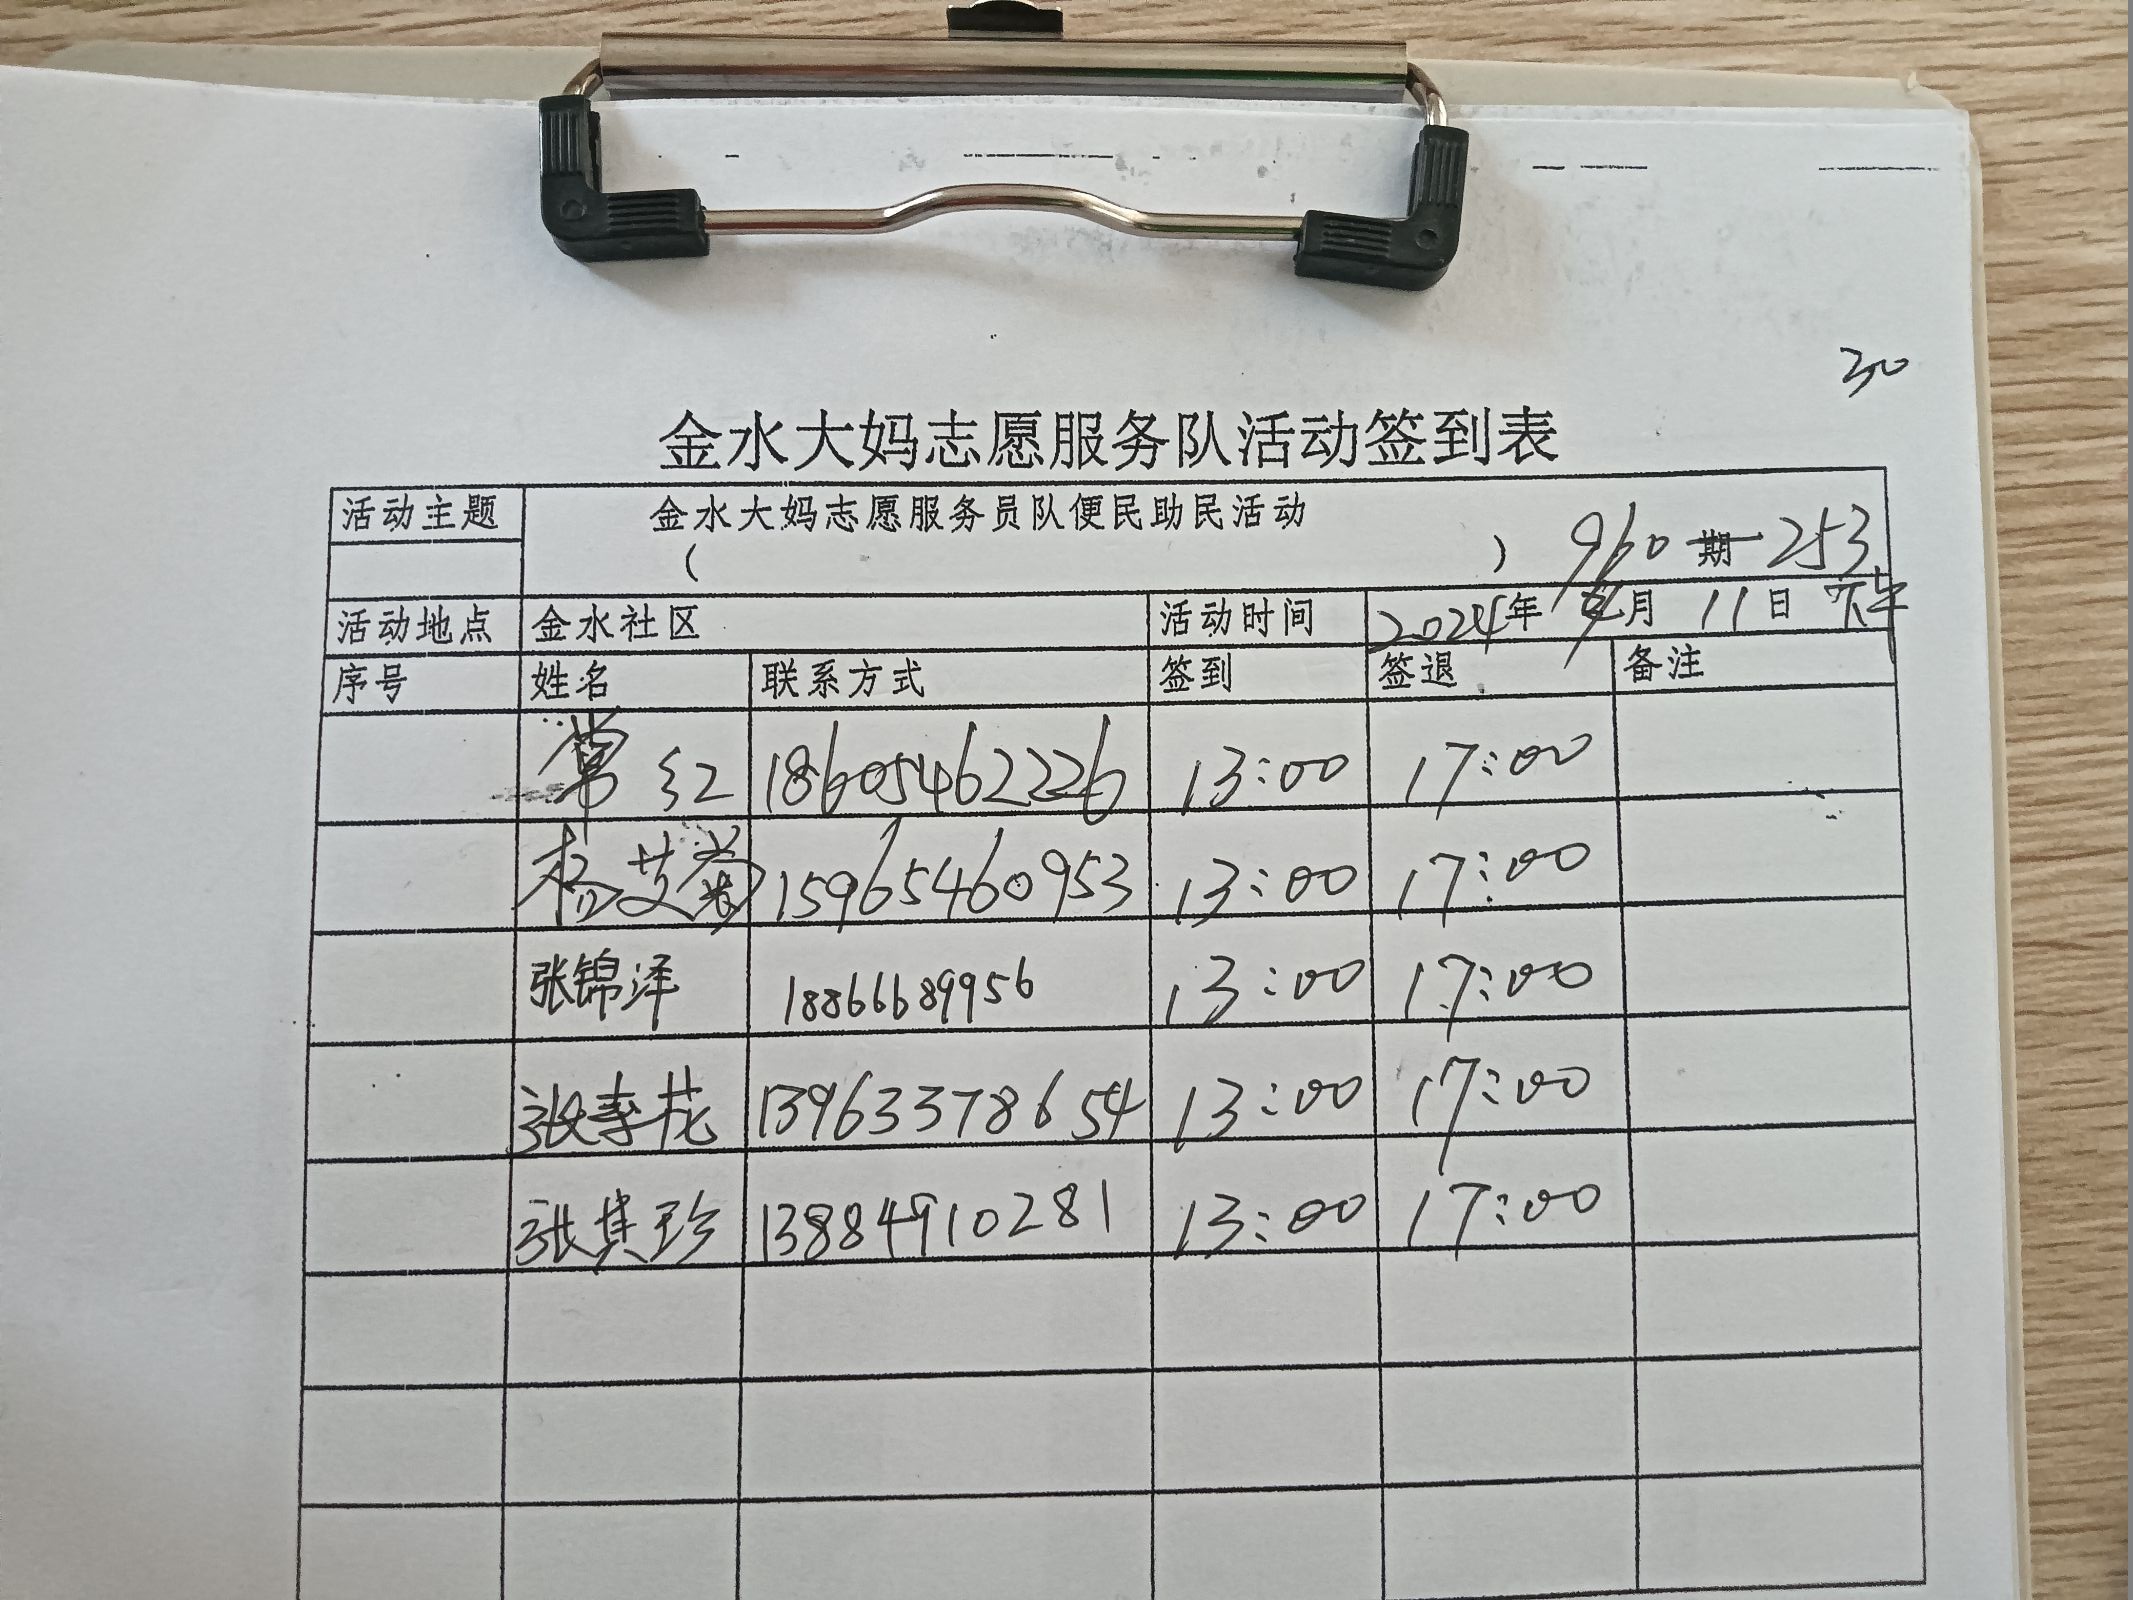 30
金水大妈志愿服务队活动签到表
活动主题 金水大妈志愿服务员队便民助民活动
( ) 960期-253
活动地点 金水社区 活动时间 2024年 月 11日 下午
序号 姓名 联系方式 签到 签退 备注
常红 18605462226 13:00 17:00
杨艾菊 15965460953 13:00 17:00
张锦泽 18866689956 13:00 17:00
张李花 13963378654 13:00 17:00
张其珍 13884910281 13:00 17:00